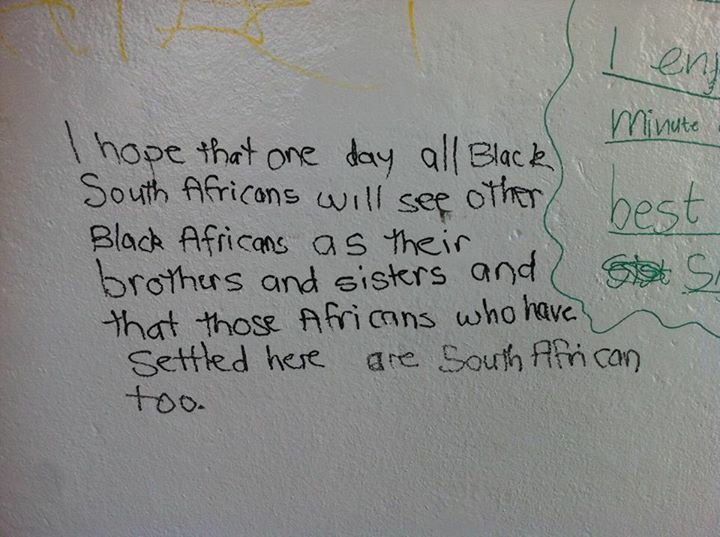 I hope that one day all Black
South Africans will see other
Black Africans as their
brothers and sisters and
that those Africans who have
settled here are South African
too.
I
minute
best